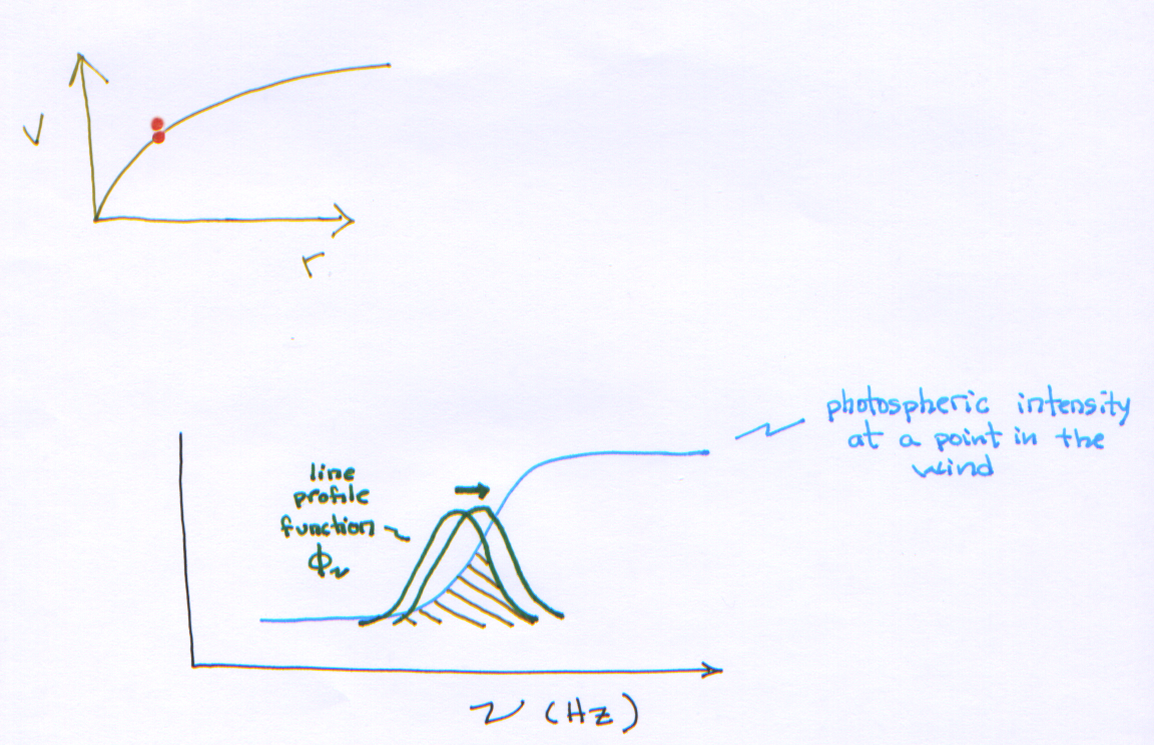 V
r
photospheric intensity
at a point in the
wind
line
profile
function
ϕν
ν (Hz)